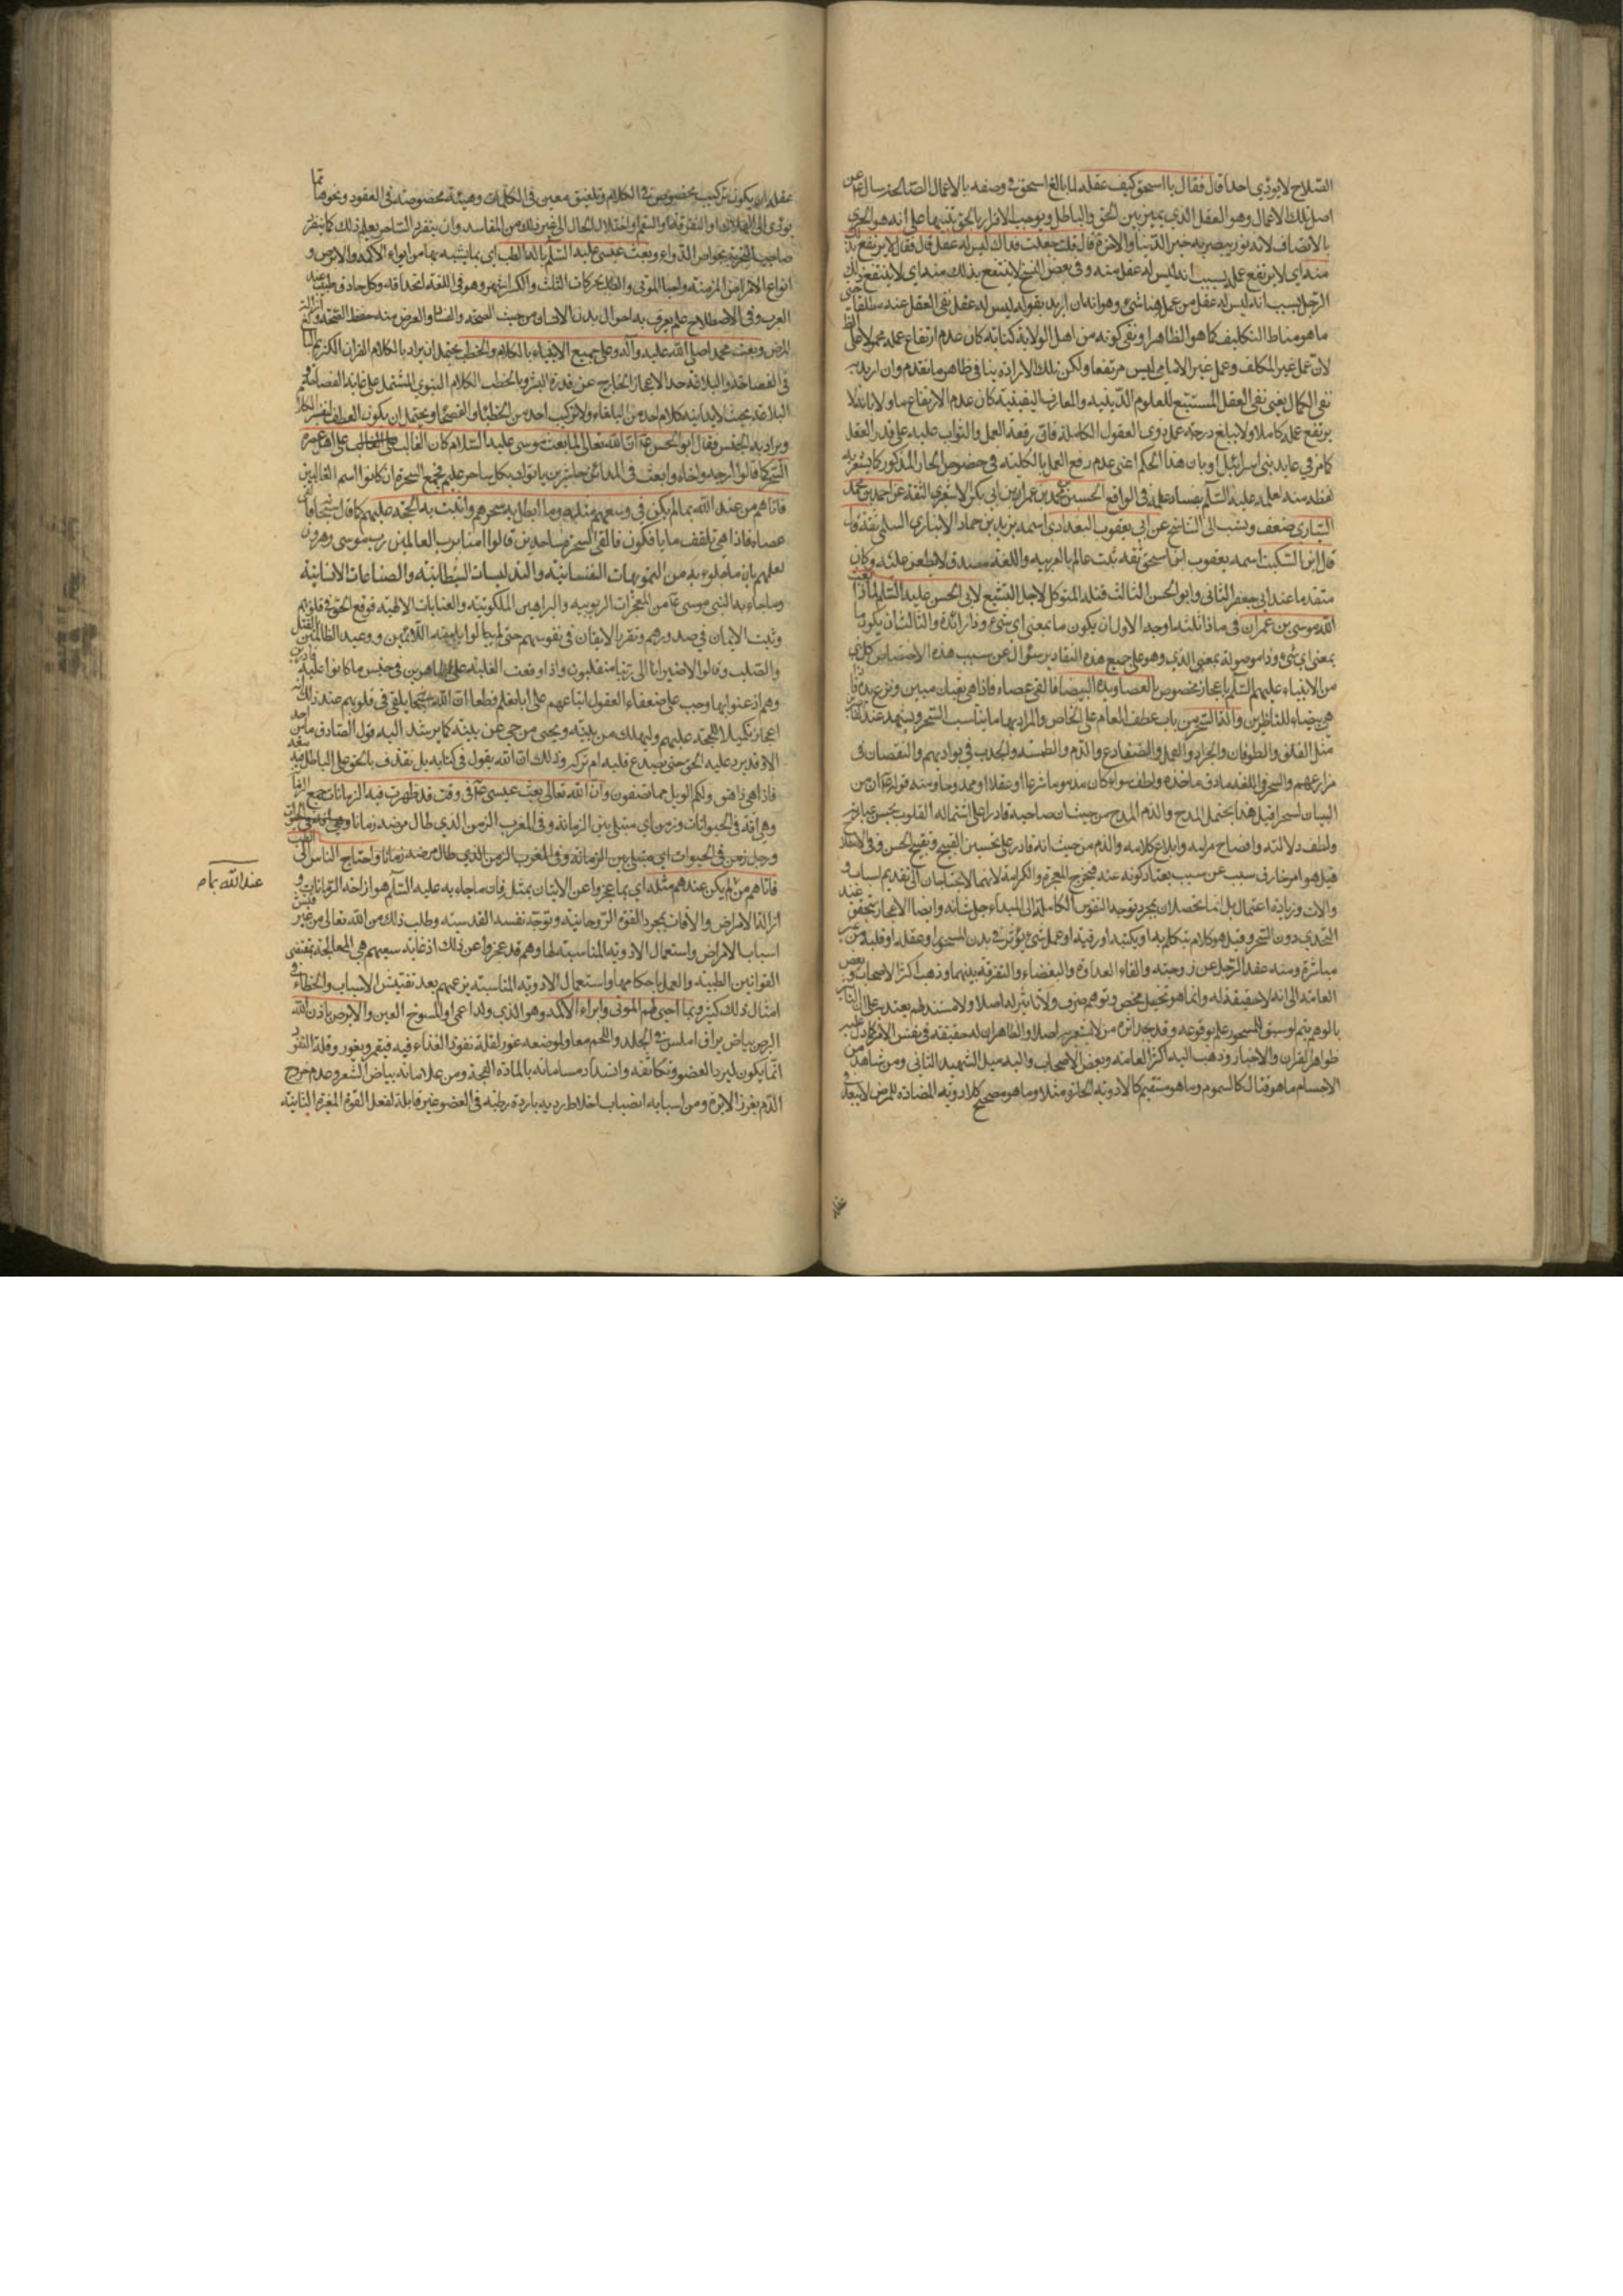 الصلاح لا يوذي احدا قال فقال يا اسحق كيف عقله لما بالغ اسحق في وصفه بالاعمال الصالحة سال عن
اصل تلك الاعمال وهو العقل الذي يميز بين الحق والباطل ويوجب الاقرار بالحق تنبيها على انه هو الحري
بالاتصاف لانه نور يبصر به خير الدنيا والاخرة قال قلت جعلت فداك ليس له عقل قال فقال لا يرتفع بذلك
منه اي لا يرتفع عمله بسبب انه ليس له عقل منه وفي بعض النسخ لا ينتفع بذلك منه اي لا ينتفع ذلك
الرجل بسبب انه ليس له عقل من عمله
ما هو مناط التكليف كما هو الظاهر او نفي كونه من اهل الولاية كناية كان عدم ارتفاع عمله محمولا على
لان عمل غير المكلف وعمل غير الامامي ليس مرتفعا ولكن تلك الارادة ينافي ظاهر ما تقدم وان اريد به
نفي الكمال يعني نفي العقل المستتبع للعلوم الدينية والمعارف اليقينية كان عدم الارتفاع ماولا بانه لا
يرتفع عمله كاملا ولا يبلغ درجة عمل ذوي العقول الكاملة فان رفعة العمل والثواب عليه على قدر العقل
كما مر في عابد بني اسرائيل او بان هذا الحكم اعني عدم رفع العمل بالكلية في خصوص الجار المذكور كما يشعر به
لفظه منه لعلمه عليه السلم بفساد عمله في الواقع الحسين بن محمد بن عمران بن ابي بكر الاشعري الثقة عن احمد بن محمد
السياري ضعف ونسب الى التناسخ عن ابي يعقوب البغدادي اسمه يزيد بن حماد الانباري السلمي ثقة قال
قال ابن السكيت اسمه يعقوب بن اسحق ثقة ثبت عالم بالعربيه واللغة مصدق لا يطعن عليه وكان
متقدما عند ابي جعفر الثاني وابو الحسن الثالث قتله المتوكل لاجل التشيع لابي الحسن عليه السلم لماذا بعث
الله موسى بن عمران في ماذا ثلثة اوجه الاول ان يكون ما بمعنى اي شيء وذا زائدة والثالث ان يكون ما
بمعنى اي شيء وذا موصولة بمعنى الذي وهو على جميع هذه التقادير سؤال عن سبب هذه الاختصاص كل نبي
من الانبياء عليهم السلم باعجاز مخصوص بالعصا ويده البيضا فالقى عصاه فاذا هي ثعبان مبين ونزع يده فاذا
هي بيضاء للناظرين والة السحر من باب عطف العام على الخاص والمراد بها ما يناسب السحر
مثل الفلق والطوفان والجراد والقمل والضفادع والدم والطمسة والجدب في بواديهم والنقصان في
مزارعهم والسحر في اللغة ما دق ماخذه ولطف سواء كان مذموما شرعا او عقلا او ممدوحا ومنه قوله ان من
البيان لسحرا قيل هذا يحتمل المدح والذم المدح من حيث ان صاحبه قادر على استمالة القلوب بحسن عبارته
ولطف دلالته وافصاح مرامه وابلاغ كلامه والذم من حيث انه قادر على تحسين القبيح وتقبيح الحسن وفي الاصطلاح
قيل هو امر خارق سبب عن سبب يعتاد كونه عنه فيخرج المعجزة والكرامة لانهما لا يحتاجان الى تقديم اسباب و
والات وزيادة اعتمال بل انما تحصلان بمجرد توجه النفوس الكاملة الى المبداء جل شانه وايضا الاعجاز يتحقق عند
التحدي دون السحر وقيل هو كلام يتكلم به او يكتبه او رقية او عمل شيء يؤثر في بدن المسحور او عقله او قلبه من غير
مباشرة ومنه عقد الرجل عن زوجته والقاء العداوة والبغضاء والتفرقة بينهما وذهب اكثر الاصحاب وبعض
العامة الى انه لا حقيقة له وانما هو تخييل محض وتوهم صرف ولا تاثير له اصلا ولا مستند لهم يعتد به
ظواهر القران والاخبار وذهب اليه اكثر العامة وبعض الاصحاب واليه ميل الشهيد الثاني
الاجسام ما هو قتال كالسموم وما هو مسقم كالادوية الحارة مثلا وما هو مصحح كالادوية المضادة للمرض لا يبعد
عقله ان يكون تركيب مخصوص في الكلام وتلفيق معين في الكلمات وهيئة مخصوصة في العقود ونحوها مما
يؤدي الى الهلاك او التفرقة او السقم او اختلال الحال الى غير ذلك من المفاسد وان يتفرد الساحر بعلم ذلك كما يتفرد
صاحب التجربة بخواص الدواء وبعث عيسى عليه السلم بالة الطب اي بما يشبه بها من ابراء الاكمه والابرص و
انواع الامراض المزمنة واحيا الموتى والطب بحركات الثلث والكسر اشهر وهو في اللغة الحذاقة وكل حاذق طبيب عند
العرب وفي الاصطلاح علم يعرف به احوال بدن الانسان من حيث الصحة والفساد والغرض منه حفظ الصحة وازالة
المرض وبعث محمدا صلى الله عليه وآله وعلى جميع الانبياء بالكلام والخطب يحتمل ان يراد بالكلام القران الكريم البالغ
في الفصاحة والبلاغة حد الاعجاز الخارج عن قدرة البشر وبالخطب الكلام النبوي المشتمل على غاية الفصاحة و
البلاغة بحيث لا يدانيه كلام احد من البلغاء ولا تركيب احد من الخطباء والفصحاء ويحتمل ان يكون العطف لتفسير الكلام
ويراد به الجنس فقال ابو الحسن ع ان الله تعالى لما بعث موسى عليه السلام كان الغالب على اهل عصره
السحر كما قالوا ارجه واخاه وابعث في المدائن حاشرين ياتوك بكل ساحر عليم فجمع السحرة ان كانوا هم الغالبين
فاتاهم من عند الله بما لم يكن في وسعهم مثله وما ابطل به سحرهم واثبت به الحجة عليهم كما قال سبحانه فالقى
عصاه فاذا هي تلقف ما يافكون فالقي السحرة ساجدين قالوا امنا برب العالمين رب موسى وهرون
لعلمهم بان ما جاؤا به من التمويهات النفسانية والتدليسات الشيطانية والصناعات الانسانية
وما جاء به النبي موسى ع من المعجزات الربوبيه والبراهين الملكوتية والعنايات الالهية فوقع الحق في قلوبهم
وثبت الايمان في صدورهم وتقرر الايقان في نفوسهم حتى لم يبالوا بلومة اللائمين ووعيد الظالمين بالقتل
والصلب وقالوا لا ضير انا الى ربنا منقلبون واذا وقعت الغلبة على الماهرين في جنس ما كانوا عليه قادرين
وهم اذعنوا بها وجب على ضعفاء العقول اتباعهم
اعجاز تكميلا للحجة عليهم وليهلك من هلك عن بينة ويحيى من حي عن بينة كما يرشد اليه قول الصادق ما من احد
الا وقد يرد عليه الحق حتى يصدع قلبه ام تركه وذلك ان الله يقول في كتابه بل نقذف بالحق على الباطل فيدمغه
فاذا هي زاهق ولكم الويل مما تصفون وان الله تعالى بعث عيسى ع في وقت قد ظهرت فيه الزمانات جمع الزمانة
وهي افة في الحيوانات وزمن اي مبتلى بين الزمانة وفي المغرب الزمن الذي طال مرضه زمانا
ورجل زمن في الحيوات اي مبتلى بين الزمانة وفي المغرب الزمن الذي طال مرضه زمانا واحتاج الناس الى الطب
فاتاهم من
عند الله بما لم
لم يكن عندهم مثله اي بما عجزوا عن الاتيان بمثله فان ما جاء به عليه السلم هو ازاحة الزمانات و
ازالة الامراض والافات بمجرد القوة الروحانية وتوجه نفسه القدسية وطلب ذلك من الله تعالى من غير تفتيش
اسباب الامراض واستعمال الادويه المناسبة لها وهم قد عجزوا عن ذلك اذ غاية سعيهم هي المعالجة بمقتضى
القوانين الطبية والعمل باحكامها واستعمال الادوية المناسبة بزعمهم بعد تفتيش الاسباب والخطاء في
امثال ذلك كثير وبما احيى لهم الموتى وابراء الاكمه وهو الذي ولد اعمى او الممسوخ العين والابرص باذن الله
البرص بياض براق املس في الجلد واللحم معا ولموضعه غور لقلة نفوذ الغذاء فيه فيقعر ويغور وقلة النفوذ
انما يكون لبرد العضو وتكاثفه وانسداد مساماته بالمادة الفجة ومن علاماته بياض الشعر وعدم خروج
الدم بغرز الابرة ومن اسبابه انصباب اخلاط رديه باردة رطبة في العضو غير قابلة لفعل القوة المغيرة الثانية